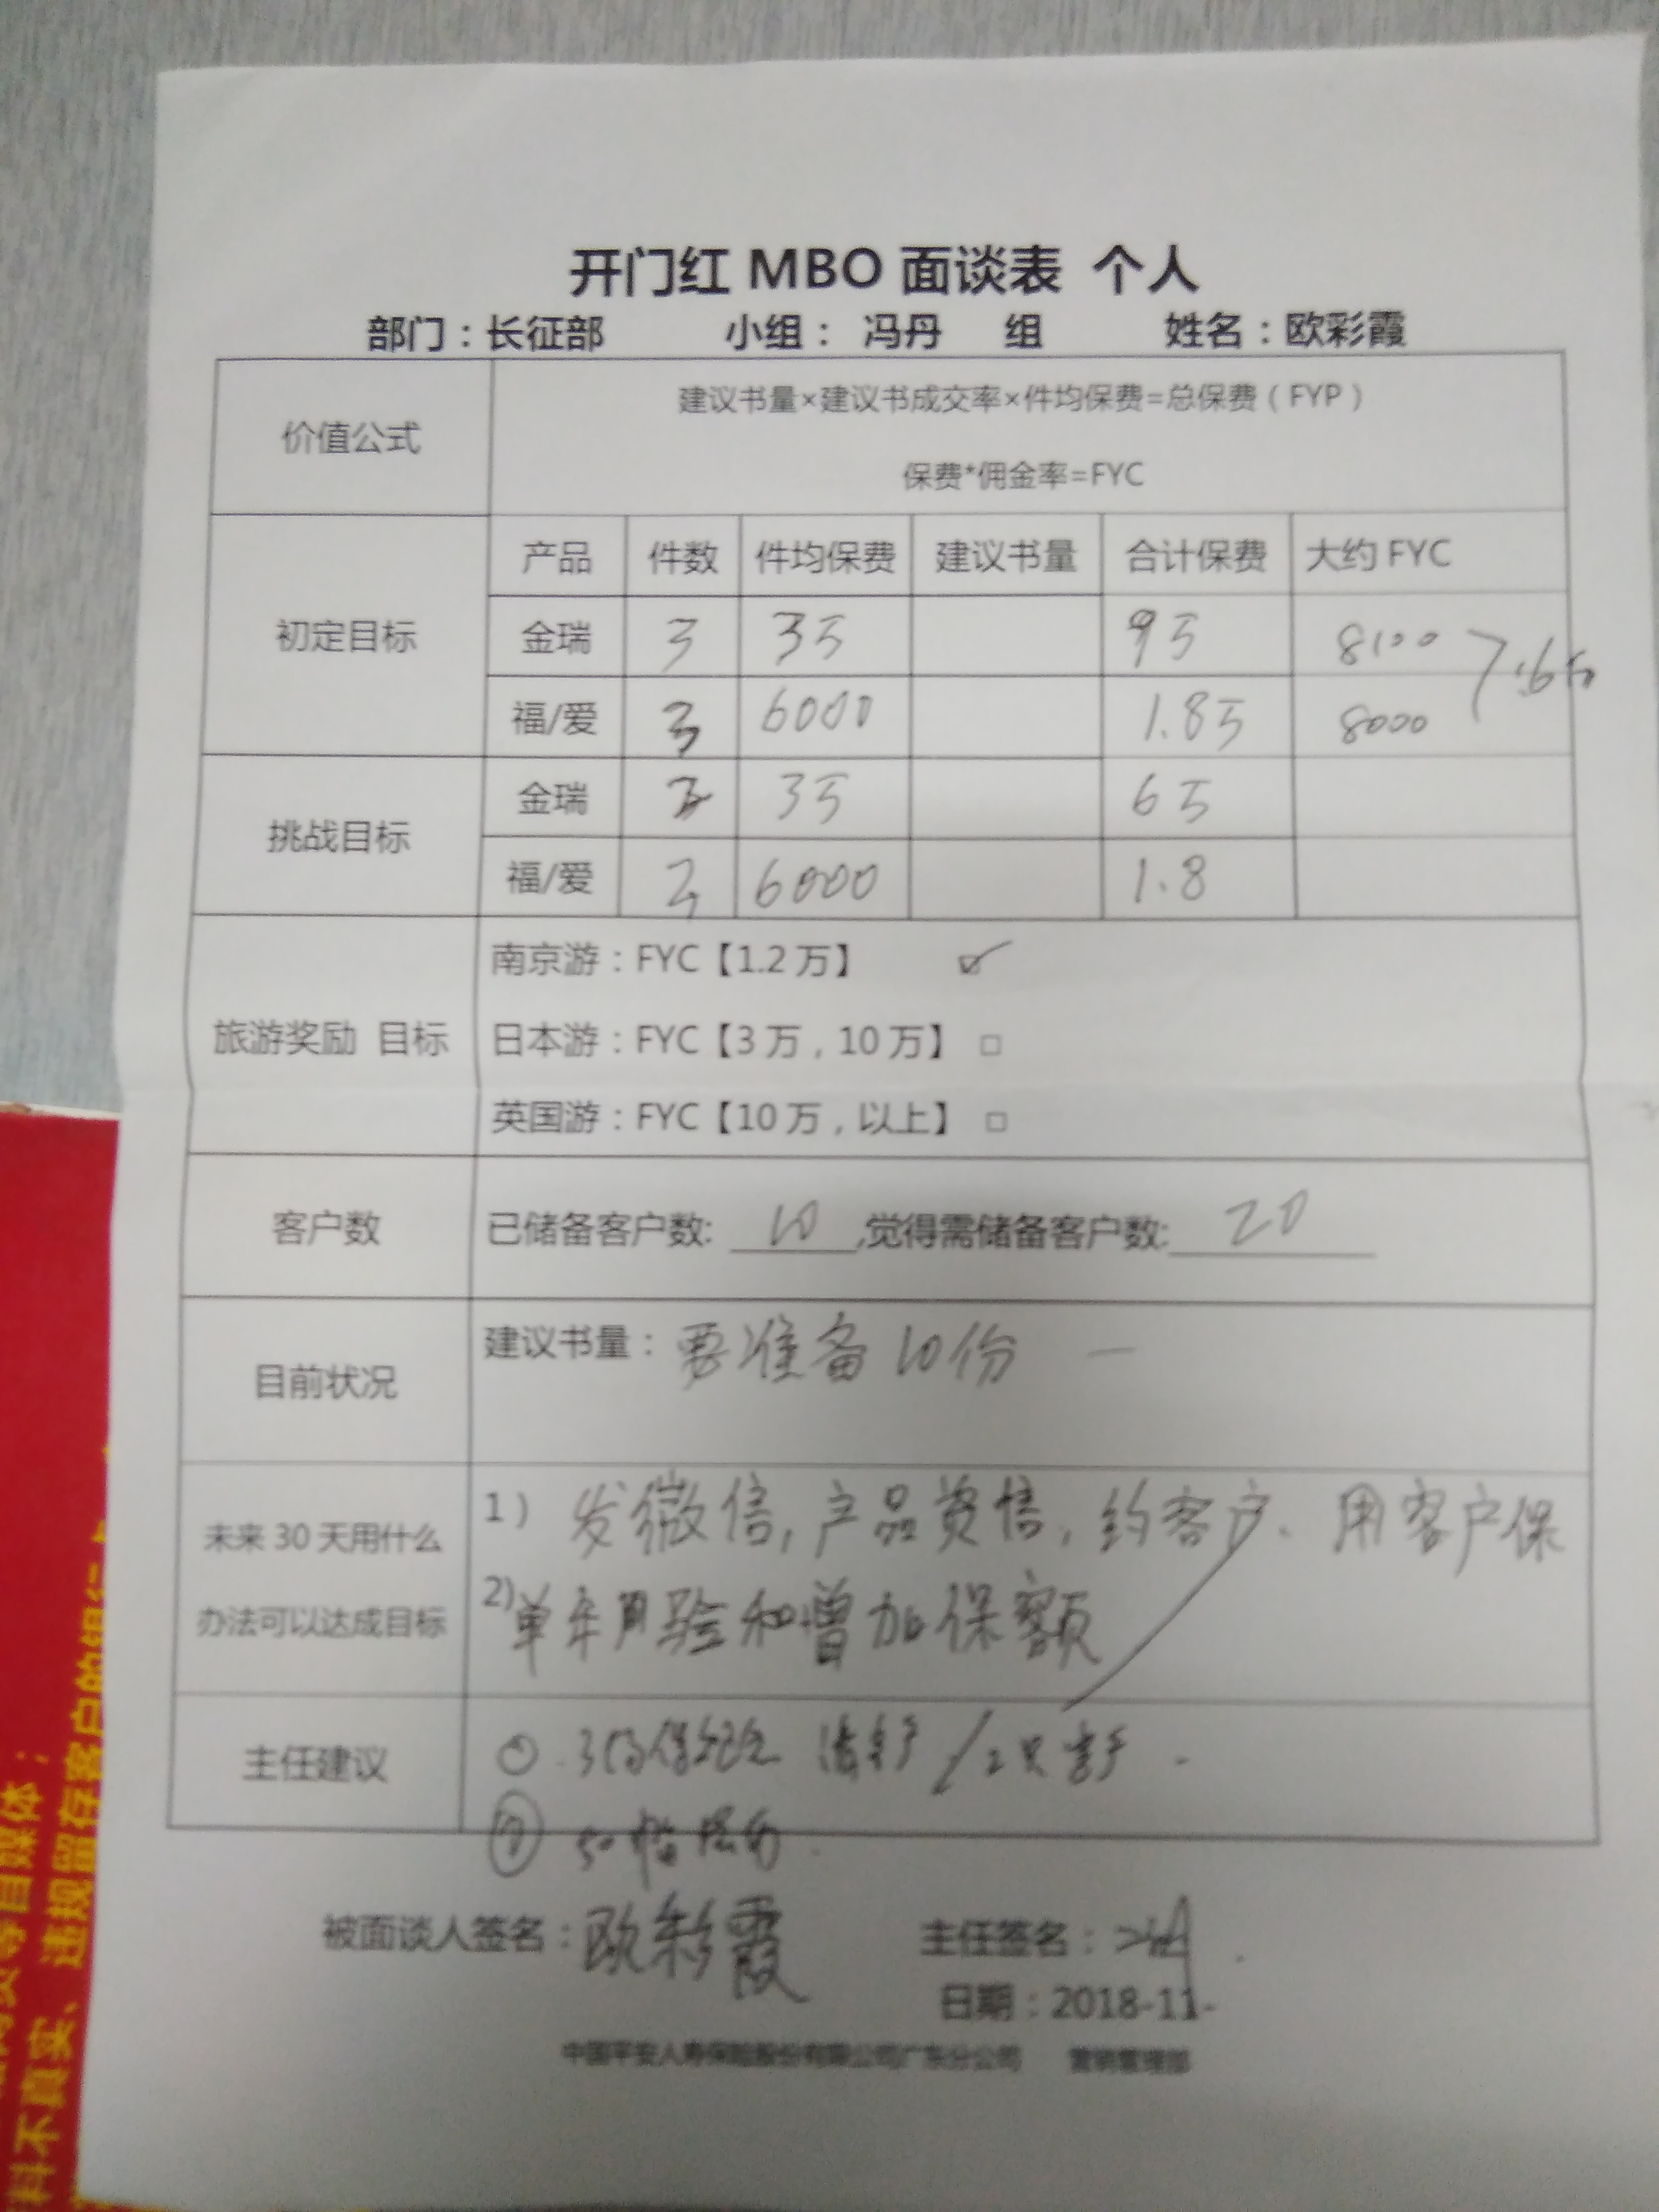 开门红 MBO 面谈表 个人
部门：长征部 小组： 冯丹 组 姓名：欧彩霞
价值公式
建议书量×建议书成交率×件均保费=总保费（FYP）
保费*佣金率=FYC
初定目标
产品 件数 件均保费 建议书量 合计保费 大约 FYC
金瑞 3 3万 9万 8100
福/爱 3 6000 1.8万 8000
挑战目标
金瑞 3万 6万
福/爱 6000 1.8
旅游奖励 目标
南京游：FYC【1.2 万】 ☑
日本游：FYC【3 万，10 万】 □
英国游：FYC【10 万，以上】 □
客户数
已储备客户数: 10 ,觉得需储备客户数: 20
目前状况
建议书量：要准备10份 一
未来 30 天用什么
办法可以达成目标
1） 发微信，产品资信，约客户、用客户保
2)单年月验和增加保额
主任建议
被面谈人签名：欧彩霞 主任签名：
日期：2018-11-
中国平安人寿保险股份有限公司广东分公司 营销管理部
料不真实、违规留存客户的银行
等自媒体；